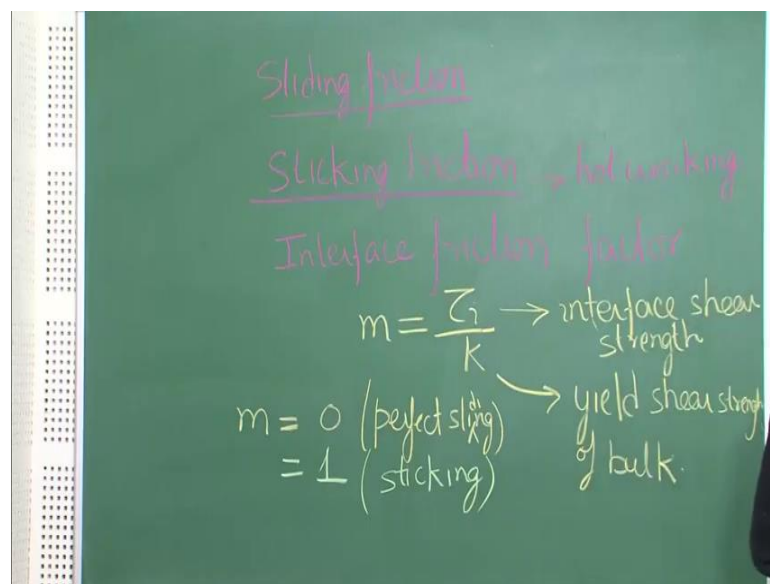 Sliding friction
Sticking friction → hot working
Interface friction factor
m = τi / k → interface shear strength
→ yield shear strength of bulk.
m = 0 (perfect sliding)
= 1 (sticking)